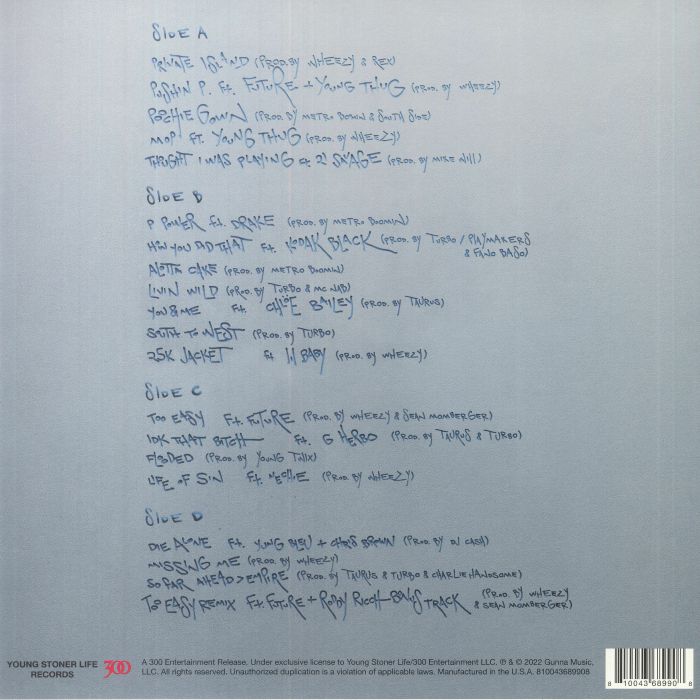 SIDE A
PRIVATE ISLAND (PROD. BY WHEEZY & REV)
PUSHIN P. FT. FUTURE + YOUNG THUG (PROD. BY WHEEZY)
POOCHIE GOWN (PROD. BY METRO BOMIN & SOUTH SIDE)
MOP FT. YOUNG THUG (PROD. BY WHEEZY)
THOUGHT I WAS PLAYING 21 SAVAGE (PROD. BY MIKE WILL)
SIDE B
P POWER FT. DRAKE (PROD. BY METRO BOOMIN)
HOW YOU DID THAT FT. KODAK BLACK (PROD. BY TURBO / PLAYMAKERS
& FANO BASO)
ALOTTA CAKE (PROD. BY METRO BOOMIN)
LIVIN WILD (PROD. BY TURBO & MC NAB)
YOU & ME FT. CHLÖE BAILEY (PROD. BY TAURUS)
SOUTH TO WEST (PROD. BY TURBO)
25K JACKET FT. LIL BABY (PROD. BY WHEEZY)
SIDE C
TOO EASY FT. FUTURE (PROD. BY WHEEZY & SEAN MOMBERGER)
IDK THAT BITCH FT. G HERBO (PROD. BY TAURUS & TURBO)
FLOODED (PROD. BY YOUNG TWIX)
LIFE OF SIN FT. NECHIE (PROD. BY WHEEZY)
SIDE D
DIE ALONE FT. YUNG BLEU + CHRIS BROWN (PROD. BY DJ CASH)
MISSING ME (PROD. BY WHEEZY)
SO FAR AHEAD > EMPIRE (PROD. BY TAURUS & TURBO & CHARLIE HANDSOME)
TOO EASY REMIX FT. FUTURE + RODDY RICCH - BONUS TRACK (PROD. BY WHEEZY
& SEAN MOMBERGER)
YOUNG STONER LIFE
RECORDS
300
A 300 Entertainment Release, Under exclusive license to Young Stoner Life/300 Entertainment LLC, ℗ & © 2022 Gunna Music,
LLC. All rights reserved. Unauthorized duplication is a violation of applicable laws. Manufactured in the U.S.A. 810043689908
8 10043 68990 8